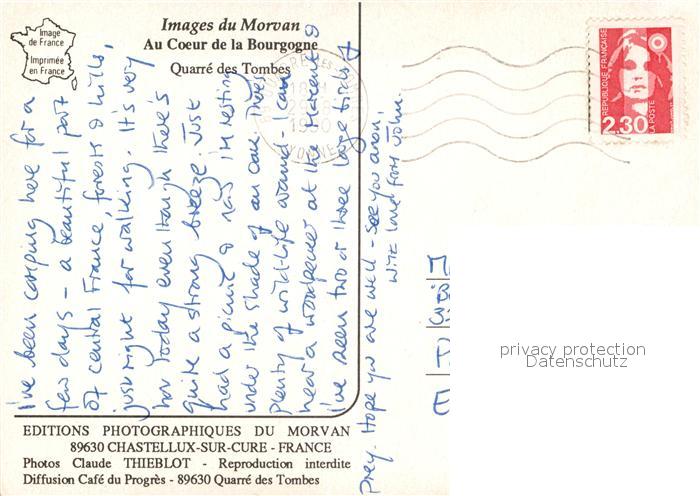 Image
de France
Imprimée
en France
Images du Morvan
Au Coeur de la Bourgogne
Quarré des Tombes
I've been camping here for a
few days – a beautiful part
of central France, forests & hills,
just right for walking. It's very
hot today even though there's
quite a strong breeze. Just
had a picnic & now I'm resting
under the shade of an oak tree.
Plenty of wild-life around. I can
hear a woodpecker at the moment &
I've seen two or three large birds of
prey. Hope you are well – see you anon,
with love from John.
EDITIONS PHOTOGRAPHIQUES DU MORVAN
89630 CHASTELLUX-SUR-CURE - FRANCE
Photos Claude THIEBLOT - Reproduction interdite
Diffusion Café du Progrès - 89630 Quarré des Tombes
1990
YONNE
REPUBLIQUE FRANÇAISE
2,30
LA POSTE
privacy protection
Datenschutz